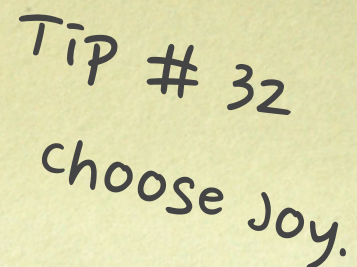 Tip # 32
choose Joy.